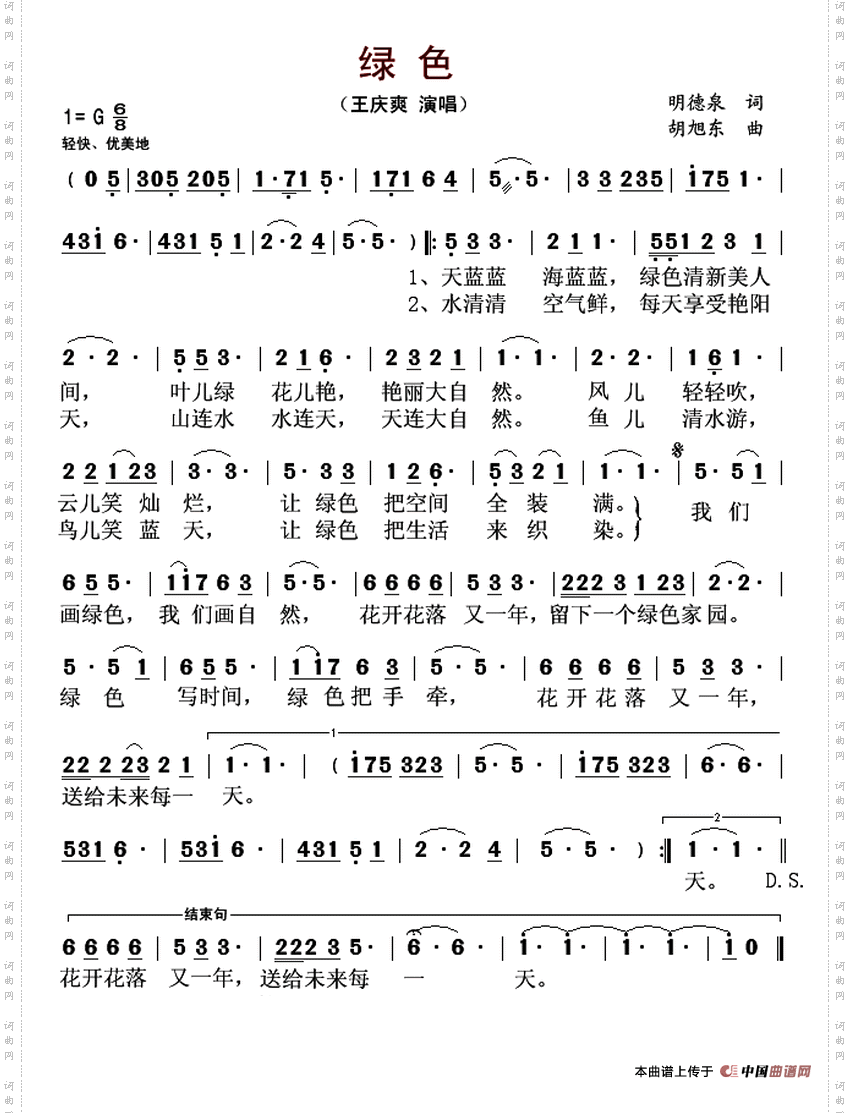 绿 色
（王庆爽 演唱）
明德泉 词
1= G 6/8
胡旭东 曲
轻快、优美地
( 0 5 | 305 205 | 1·71 5· | 171 6 4 | 5 ·5· | 3 3 235 | 175 1· |
431 6· | 431 5 1 | 2·2 4 | 5·5· ) ‖: 5 3 3· | 2 1 1· | 551 2 3 1 |
1、天蓝蓝 海蓝蓝， 绿色清新美人
2、水清清 空气鲜， 每天享受艳阳
2 · 2 · | 5 5 3· | 2 1 6 · | 2 3 2 1 | 1 · 1 · | 2 · 2 · | 1 6 1 · |
间， 叶儿绿 花儿艳， 艳丽大自 然。 风 儿 轻轻吹，
天， 山连水 水连天， 天连大自 然。 鱼 儿 清水游，
2 2 1 23 | 3 · 3 · | 5 · 3 3 | 1 2 6 · | 5 3 2 1 | 1 · 1 · | 5 · 5 1 |
云儿笑 灿 烂， 让 绿色 把空间 全 装 满。 我 们
鸟儿笑 蓝 天， 让 绿色 把生活 来 织 染。
6 5 5 · | 1 176 3 | 5 · 5 · | 6 6 6 6 | 5 3 3 · | 222 3 1 23 | 2 · 2 · |
画绿色， 我 们画自 然， 花开花落 又一年， 留下一个绿色家 园。
5 · 5 1 | 6 5 5 · | 1 17 6 3 | 5 · 5 · | 6 6 6 6 | 5 3 3 · |
绿 色 写时间， 绿 色 把 手 牵， 花 开 花 落 又 一 年，
1
22 2 23 2 1 | 1 · 1 · | ( 175 323 | 5 · 5 · | 175 323 | 6 · 6 · |
送给未来每一 天。
2
531 6 · | 531 6 · | 431 5 1 | 2 · 2 4 | 5 · 5 · ) :‖ 1 · 1 · ‖
天。 D.S.
结束句
6 6 6 6 | 5 3 3 · | 222 3 5 · | 6 · 6 · | 1 · 1 · | 1 · 1 · | 1 0 ‖
花开花落 又一年， 送给未来每 一 天。
本曲谱上传于 中国曲谱网